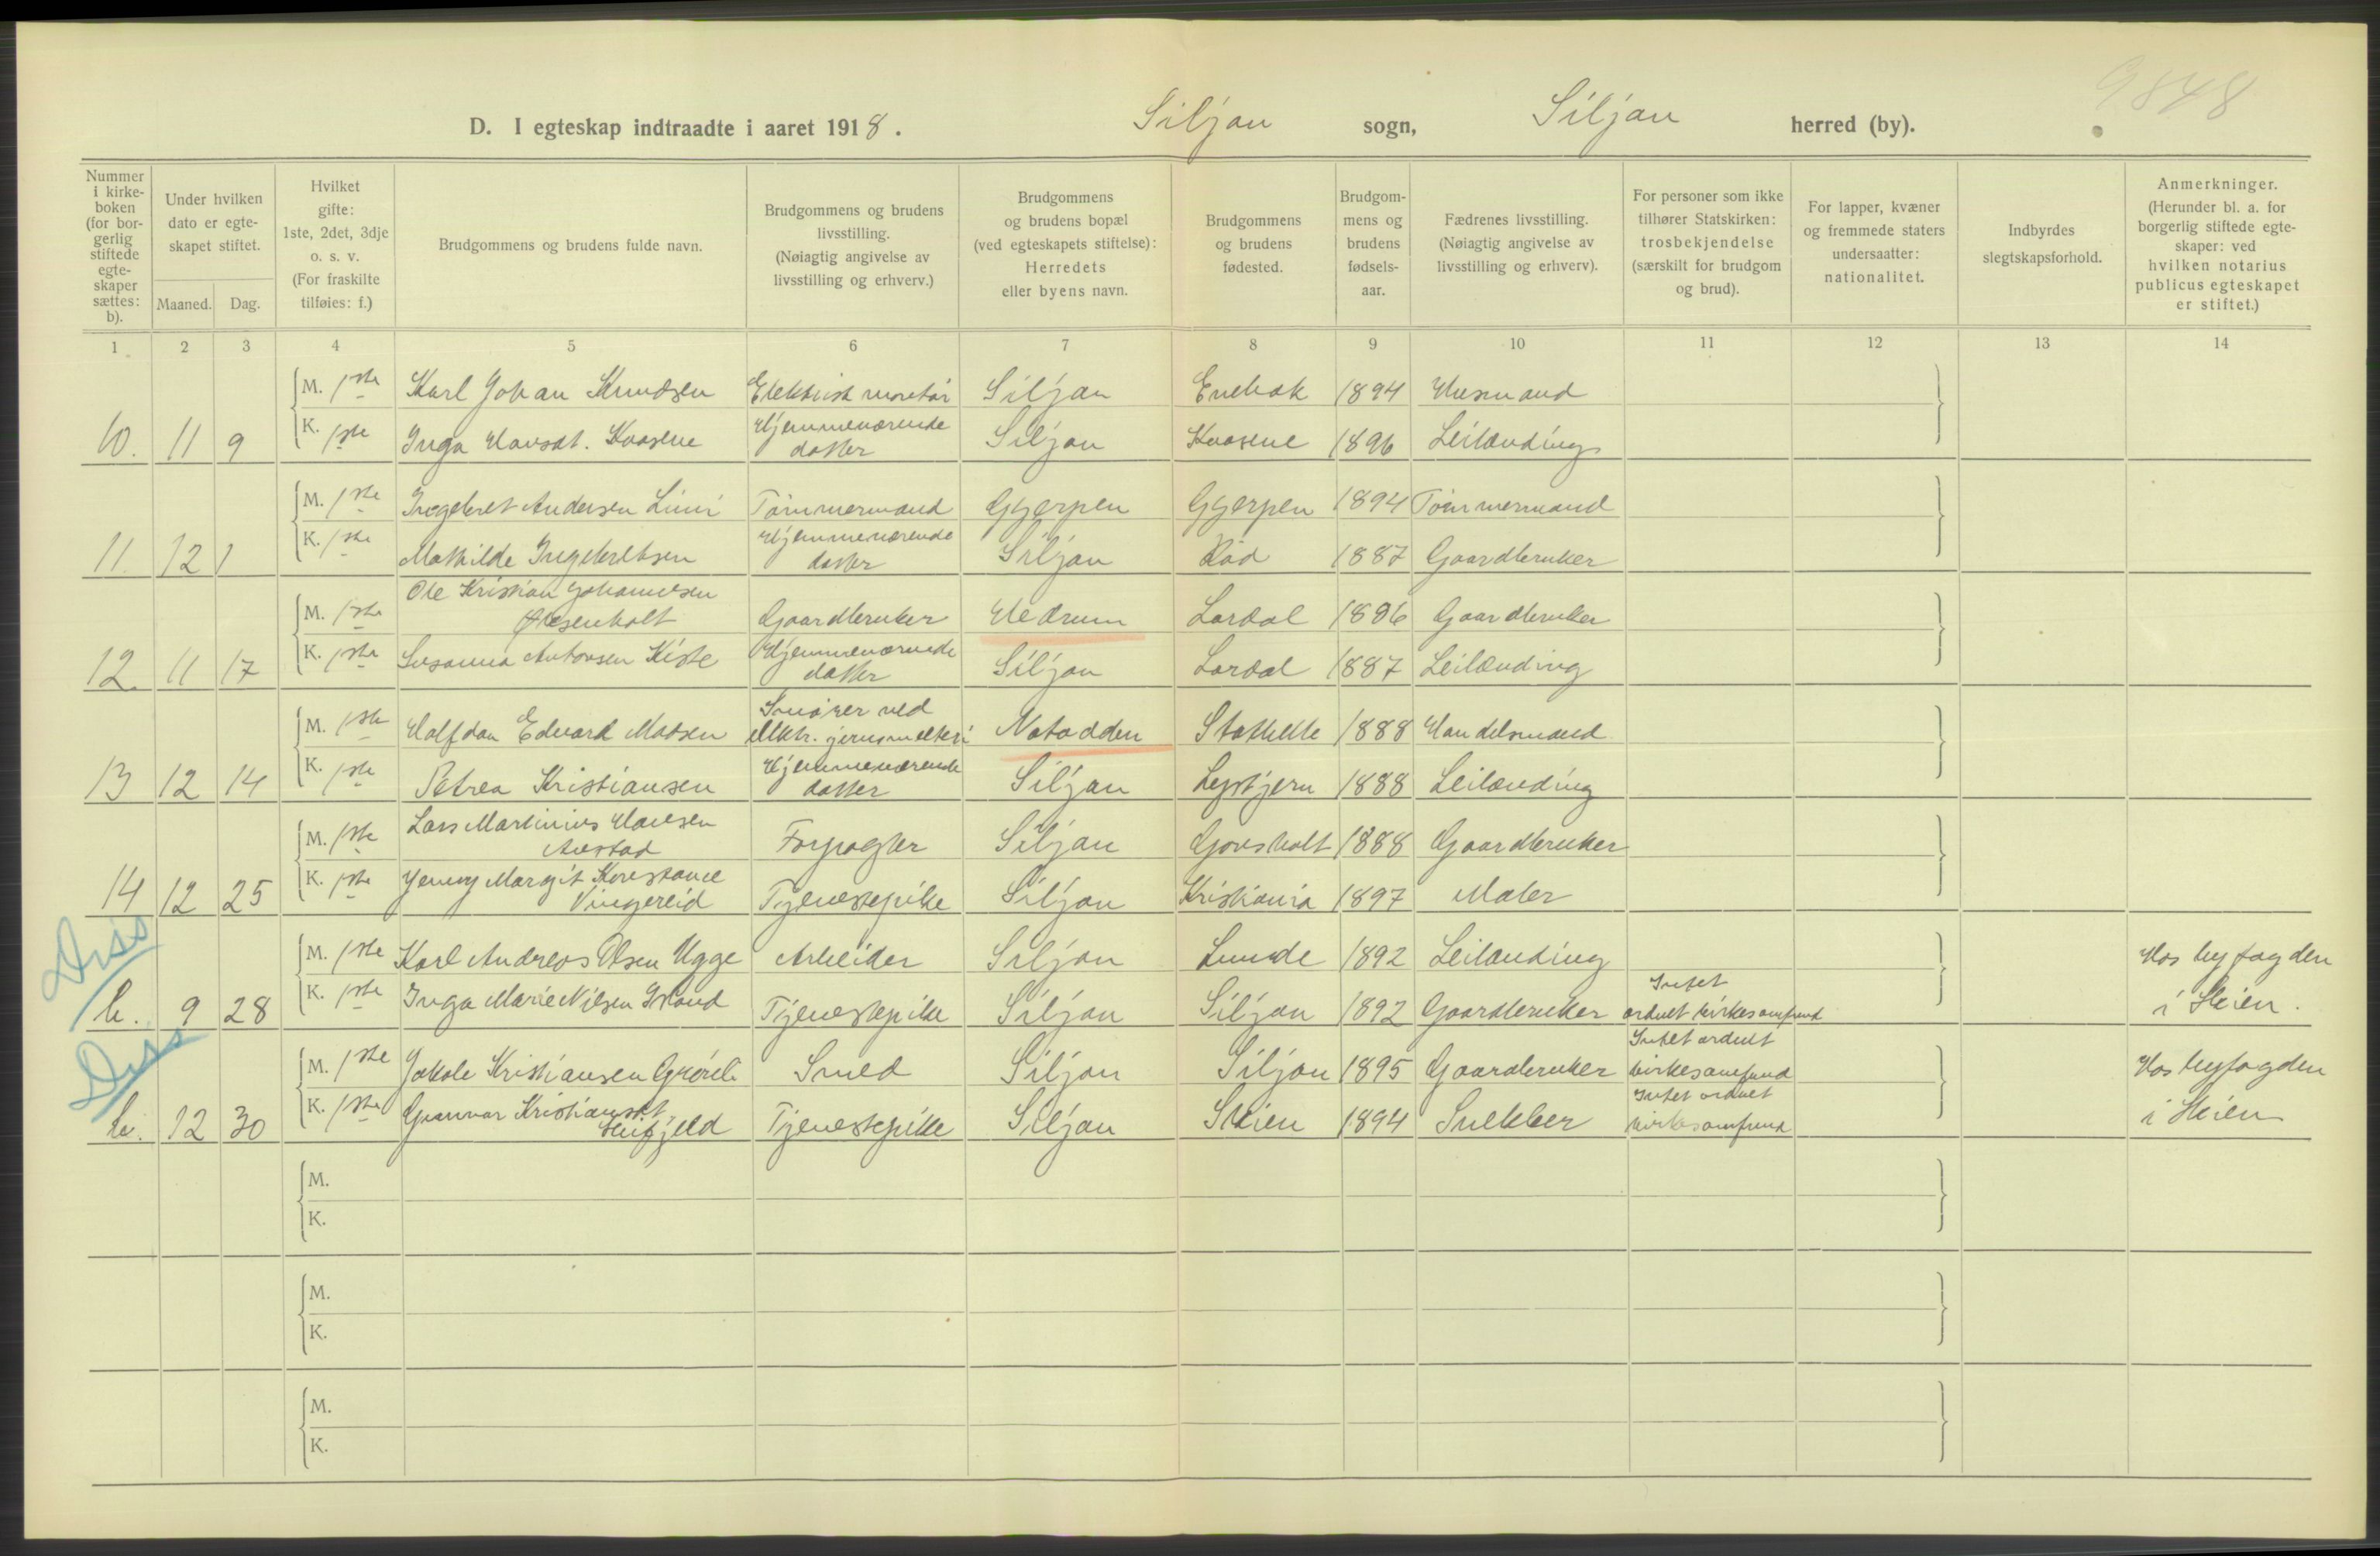 9848
D. I egteskap indtraadte i aaret 1918. Siljan sogn, Siljan herred (by).
Nummer i kirke-boken (for bor-gerlig stiftede egte-skaper sættes: b).
Under hvilken dato er egte-skapet stiftet.
Maaned. Dag.
Hvilket gifte: 1ste, 2det, 3dje o. s. v. (For fraskilte tilføies: f.)
Brudgommens og brudens fulde navn.
Brudgommens og brudens livsstilling. (Nøiagtig angivelse av livsstilling og erhverv.)
Brudgommens og brudens bopæl (ved egteskapets stiftelse): Herredets eller byens navn.
Brudgommens og brudens fødested.
Brudgom-mens og brudens fødsels-aar.
Fædrenes livsstilling. (Nøiagtig angivelse av livsstilling og erhverv).
For personer som ikke tilhører Statskirken: trosbekjendelse (særskilt for brudgom og brud).
For lapper, kvæner og fremmede staters undersaatter: nationalitet.
Indbyrdes slegtskapsforhold.
Anmerkninger. (Herunder bl. a. for borgerlig stiftede egte-skaper: ved hvilken notarius publicus egteskapet er stiftet.)
1 2 3 4 5 6 7 8 9 10 11 12 13 14
M. 1ste Karl Johan Knudsen Elektrisk montør Siljan Enebak 1894 Husmand
10. 11 9 K. 1ste Inga Hansdt. Kvasene Hjemmeværende datter Siljan Kvasene 1896 Leilænding
M. 1ste Ingebret Andersen Limi Tømmermand Gjerpen Gjerpen 1894 Tømmermand
11. 12 1 K. 1ste Mathilde Ingebretsen Hjemmeværende datter Siljan Rød 1887 Gaardbruker
Ole Kristian Johannesen
M. 1ste Gaardbruker Hedrum Lardal 1896 Gaardbruker
12. 11 17 K. 1ste Susanna Antonsen Kiste Hjemmeværende datter Siljan Lardal 1887 Leilænding
M. 1ste Halfdan Edvard Madsen Smører ved elektr. jernsmelteri Notodden Stathelle 1888 Handelsmand
13 12 14 K. 1ste Petrea Kristiansen Hjemmeværende datter Siljan Lystjern 1888 Leilænding
Lars Martinius Hansen
M. 1ste Austad Forpagter Siljan Gonsholt 1888 Gaardbruker
14 12 25 K. 1ste Jenny Margit Konstance Vingereid Tjenestepike Siljan Kristiania 1897 Maler
Diss
M. 1ste Karl Andreas Olsen Ugge Arbeider Siljan Lunde 1892 Leilænding Hos byfogden
b. 9 28 K. 1ste Inga Marie Nilsen Grand Tjenestepike Siljan Siljan 1892 Gaardbruker Intet ordnet kirkesamfund i Skien.
Diss
M. 1ste Jakob Kristiansen Grorli Smed Siljan Siljan 1895 Gaardbruker Intet ordnet kirkesamfund Hos byfogden
b. 12 30 K. 1ste Gunvor Kristiansdt. Heifjeld Tjenestepike Siljan Skien 1894 Snekker Intet ordnet kirkesamfund i Skien
M.
K.
M.
K.
M.
K.